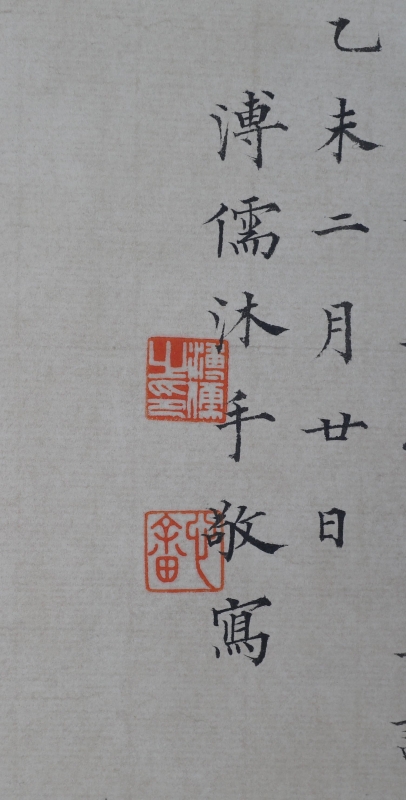 乙未二月廿日
溥儒沐手敬寫
溥儒之印